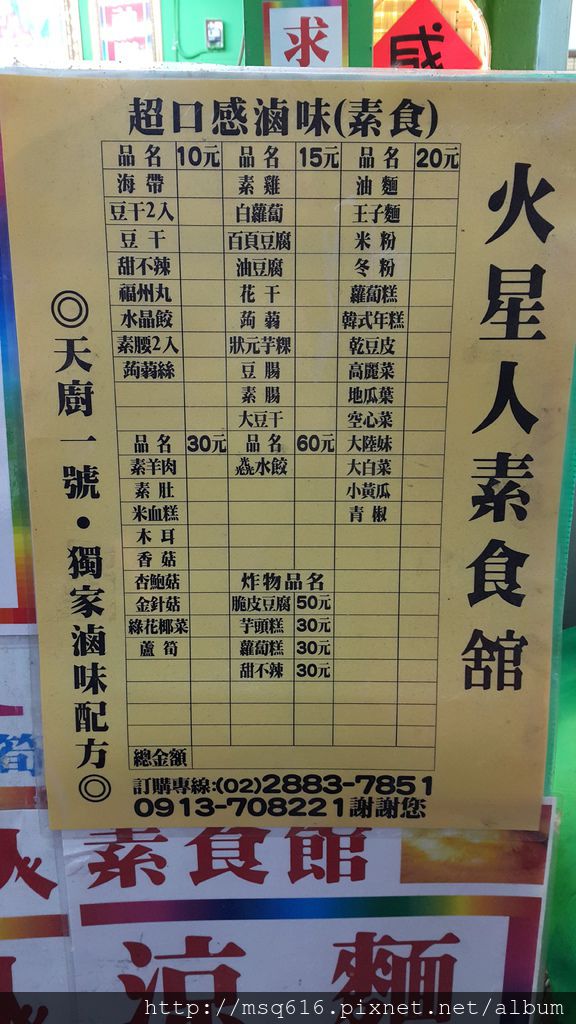 求
感
超口感滷味(素食)
品名 10元 品名 15元 品名 20元
海帶 素雞 油麵
豆干2入 白蘿蔔 王子麵
豆干 百頁豆腐 米粉
甜不辣 油豆腐 冬粉
福州丸 花干 蘿蔔糕
水晶餃 蒟蒻 韓式年糕
素腰2入 狀元芋粿 乾豆皮
蒟蒻絲 豆腸 高麗菜
素腸 地瓜葉
大豆干 空心菜
品名 30元 品名 60元 大陸妹
素羊肉 水餃 大白菜
素肚 小黃瓜
米血糕 青椒
木耳
香菇
杏鮑菇 炸物品名
金針菇 脆皮豆腐 50元
綠花椰菜 芋頭糕 30元
蘆筍 蘿蔔糕 30元
甜不辣 30元
總金額
訂購專線:(02)2883-7851
0913-708221謝謝您
火星人素食舘
◎天廚一號・獨家滷味配方◎
筒
人素食館
人涼麵
http://msq616.pixnet.net/album